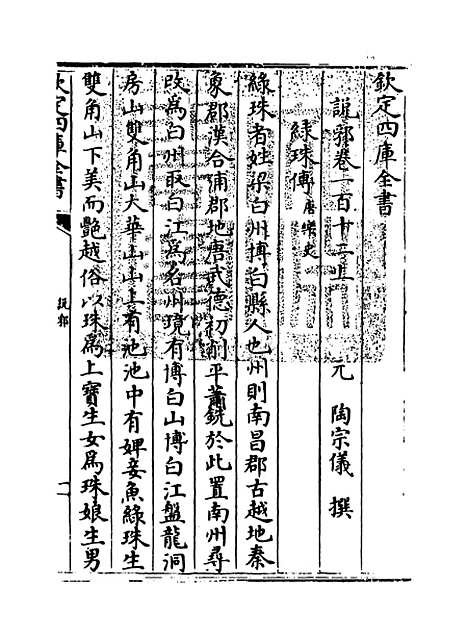 欽定四庫全書
說郛卷一百十二上
元　陶宗儀　撰
綠珠傳唐樂史
綠珠者姓梁白州博白縣人也州則南昌郡古越地秦
象郡漢合浦郡地唐武德初削平蕭銑於此置南州尋
改為白州取白江為名州境有博白山博白江盤龍洞
房山雙角山大華山山上有池池中有婢妾魚綠珠生
雙角山下美而豔越俗以珠為上寶生女為珠娘生男
欽定四庫全書
說郛
一